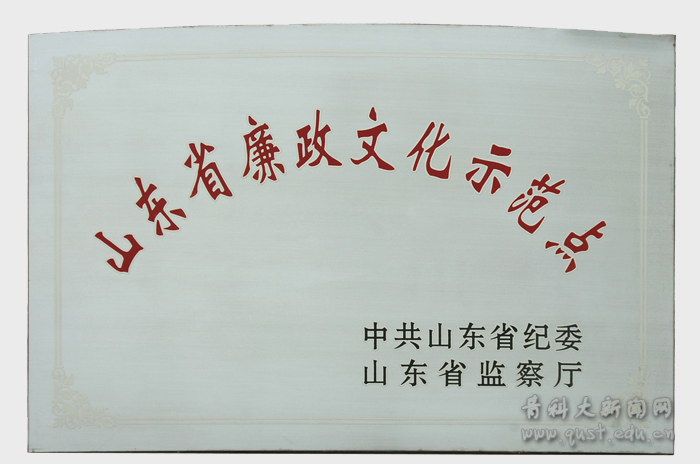 山东省廉政文化示范点
中共山东省纪委
山东省监察厅
青科大新闻网
www.qust.edu.cn